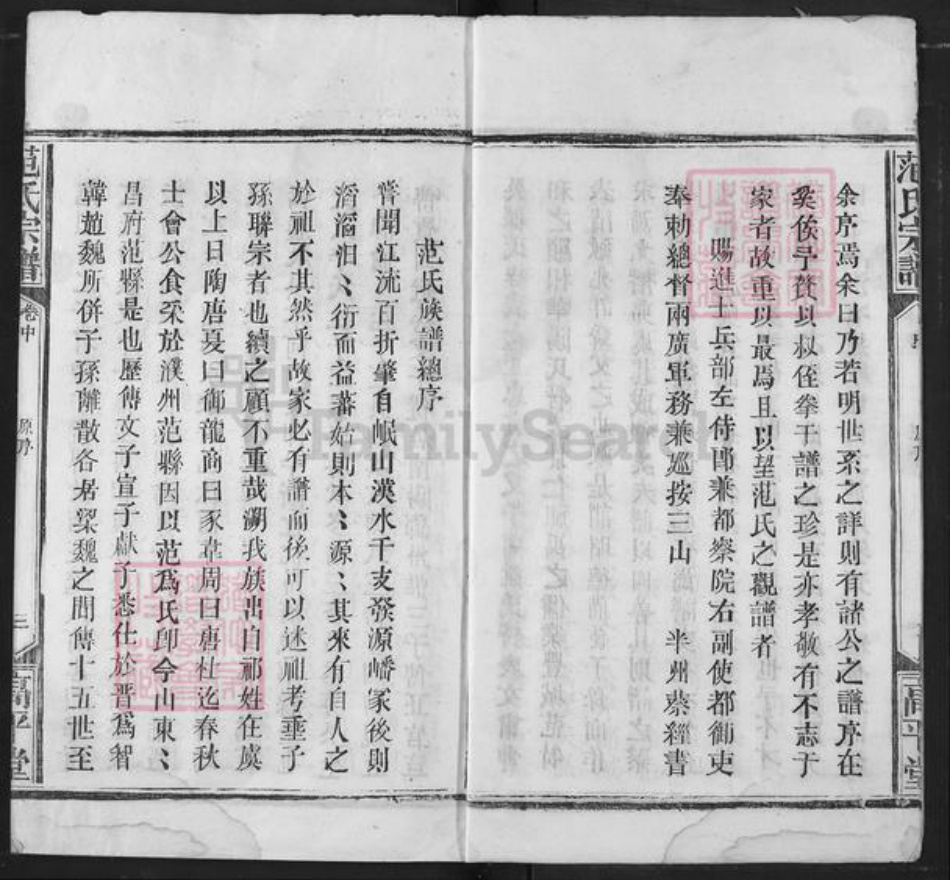 余序焉余曰乃若明世系之詳則有諸公之譜序在
奚俟予贅以叔侄拳于譜之珍是亦孝敬有不志于
家者故重以最焉且以望范氏之觀譜者
賜進士兵部左侍郎兼都察院右副使都御吏
奉勅總督兩廣軍務兼巡按三山 半州蔡經書
范氏宗譜
卷中
原序
三
高平堂
范氏族譜總序
嘗聞江流百折肇自岷山漢水千支發源嶓冢後則
滔滔汩〻衍而益蕃始則本〻源〻其來有自人之
於祖不其然乎故家必有譜而後可以述祖考垂子
孫聯宗者也續之顧不重哉溯我族出自祁姓在虞
以上曰陶唐夏曰御龍商曰豕韋周曰唐杜迄春秋
士會公食采於濮州范縣因以范爲氏卽今山東〻
昌府范縣是也歷傳文子宣子獻子悉仕於晋爲智
韓趙魏所併子孫離散各居梁魏之間傳十五世至
范氏宗譜
卷中
原序
三
高平堂
FamilySearch